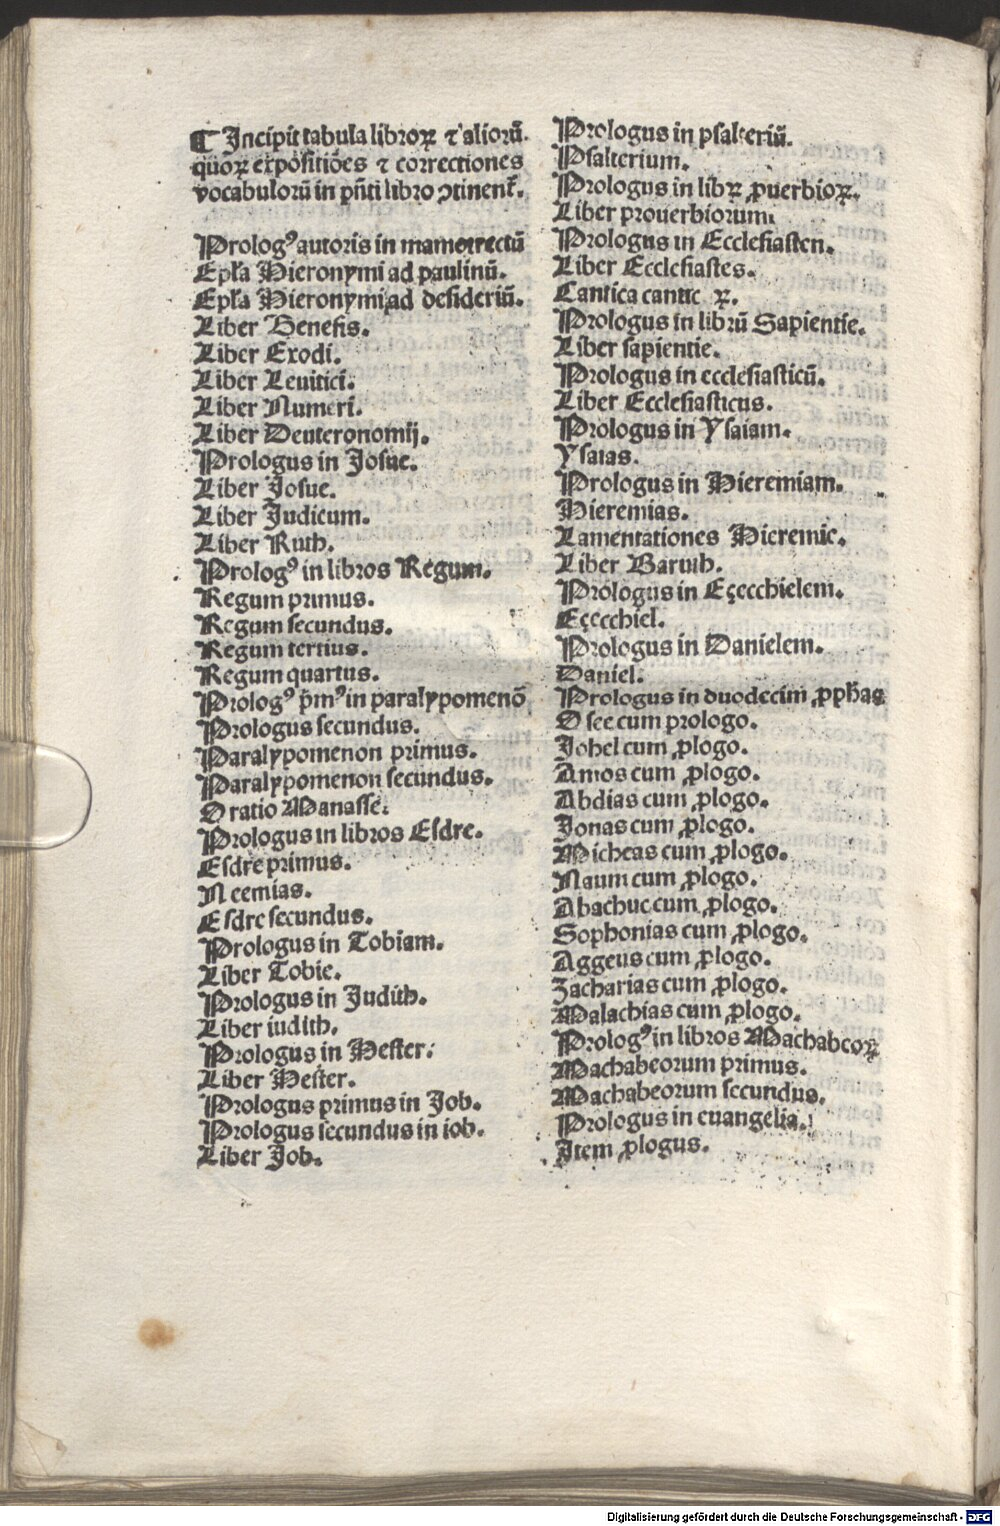 ¶ Incipit tabula libroꝝ ⁊ alioꝝ̃.
quoꝝ expositiões ⁊ correctiones
vocabuloꝝ̃ in pñti libro ꝯtinent̃.
Prologꝰ autoris in mamotrectũ
Epła Hieronymi ad paulinũ.
Epła Hieronymi ad desideriũ.
Liber Genesis.
Liber Exodi.
Liber Leuitici.
Liber Numeri.
Liber Deuteronomij.
Prologus in Josue.
Liber Josue.
Liber Judicum.
Liber Ruth.
Prologꝰ in libros Regum.
Regum primus.
Regum secundus.
Regum tertius.
Regum quartus.
Prologꝰ p̄mꝰ in paralypomenõ
Prologus secundus.
Paralypomenon primus.
Paralypomenon secundus.
Oratio Manasse.
Prologus in libros Esdre.
Esdre primus.
Neemias.
Esdre secundus.
Prologus in Tobiam.
Liber Tobie.
Prologus in Judith.
Liber iudith.
Prologus in Hester:
Liber Hester.
Prologus primus in Job.
Prologus secundus in iob.
Liber Job.
Prologus in psalteriũ.
Psalterium.
Prologus in libꝝ ꝓuerbioꝝ.
Liber prouerbiorum.
Prologus in Ecclesiasten.
Liber Ecclesiastes.
Cantica cantic ꝝ.
Prologus in librũ Sapientie.
Liber sapientie.
Prologus in ecclesiasticũ.
Liber Ecclesiasticus.
Prologus in Ysaiam.
Ysaias.
Prologus in Hieremiam.
Hieremias.
Lamentationes Hieremie.
Liber Baruth.
Prologus in Eçecchielem.
Eçecchiel.
Prologus in Danielem.
Daniel.
Prologus in duodecim ꝓpħas
Osee cum prologo.
Johel cum ꝓlogo.
Amos cum ꝓlogo.
Abdias cum ꝓlogo.
Jonas cum ꝓlogo.
Micheas cum ꝓlogo.
Naum cum ꝓlogo.
Abachuc cum ꝓlogo.
Sophonias cum ꝓlogo.
Aggeus cum ꝓlogo.
Zacharias cum ꝓlogo.
Malachias cum ꝓlogo.
Prologꝰ in libros Machabeoꝝ
Machabeorum primus.
Machabeorum secundus.
Prologus in euangelia.
Item ꝓlogus.
Digitalisierung gefördert durch die Deutsche Forschungsgemeinschaft - DFG